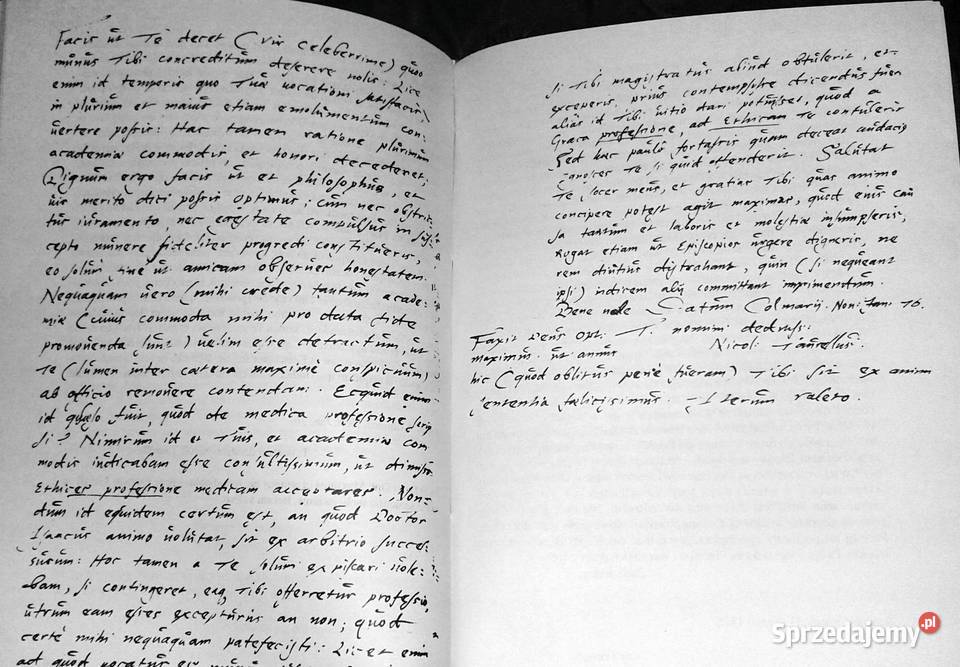 Facis ut Te decet (vir celeberrime) quod
munus Tibi concreditum deserere nolis: Lice
enim id temporis quo Tuae vocationi satisfacis,
in plurium et maius etiam emolumentum con-
vertere possis: Hac tamen ratione plurimum
academiae commodis, et honori decederet.
Dignum ergo facis ut et philosophus, et
vir merito dici possis optimus; cum nec obstric-
tus iuramento, nec egestate compulsus in sus
cepto munere fideliter progredi constitueris,
eo solum, ut amicam observes honestatem.
Nequaquam vero (mihi crede) tantum acade-
miae (cuius commoda mihi pro data fide
promovenda sunt) velim esse detractum, ut
Te (lumen inter caetera maxime conspicuum)
ab officio removere contendam. Ecquid enim
id quaeso fuit, quod de medica professione scrip
si? Nimirum id et Tuis, et academiae com
modis iudicabam esse consultissimum, ut dimissa
Ethices professione medicam acceptares. Non-
dum id equidem certum est, an quod Doctor
Isacus animo volutat, sit ex arbitrio succes-
surum: Hoc tamen a Te solum expiscari vole-
bam, si contingeret, eaq Tibi offerretur professio,
utrum eam esses excepturus an non; quod
certe mihi nequaquam patefecisti: Licet enim
ad quod vocatus es
si Tibi magistratus aliud obtulerit, et
exceperis, prius contempsisse dicendus fueris
alias id Tibi vitio dari potuisset, quod a
Graeca professione, ad Ethicam Te contuleris
Sed haec paulo fortassis quam deceat audacius
Ignosces Te si quid offenderit. Salutat
Te socer meus, et gratias Tibi quas animo
concipere potest agit maximas, quod eius cau
sa tantum et laboris et molestiae insumpseris,
Rogat etiam ut Episcopios urgere digneris, ne
rem diutius distrahant, quin (si nequeant
ipsi) indicem alij committant imprimendum.
Bene vale Datum Colmarij. Non: Jan: 76.
Faxit Deus Opt. T. nomini deditiss:
maximus ut annus Nicol: Taurellus.
hic (quod oblitus pene fueram) Tibi sit ex animi
sententia faelicissimus. Iterum valeto.
Sprzedajemy.pl